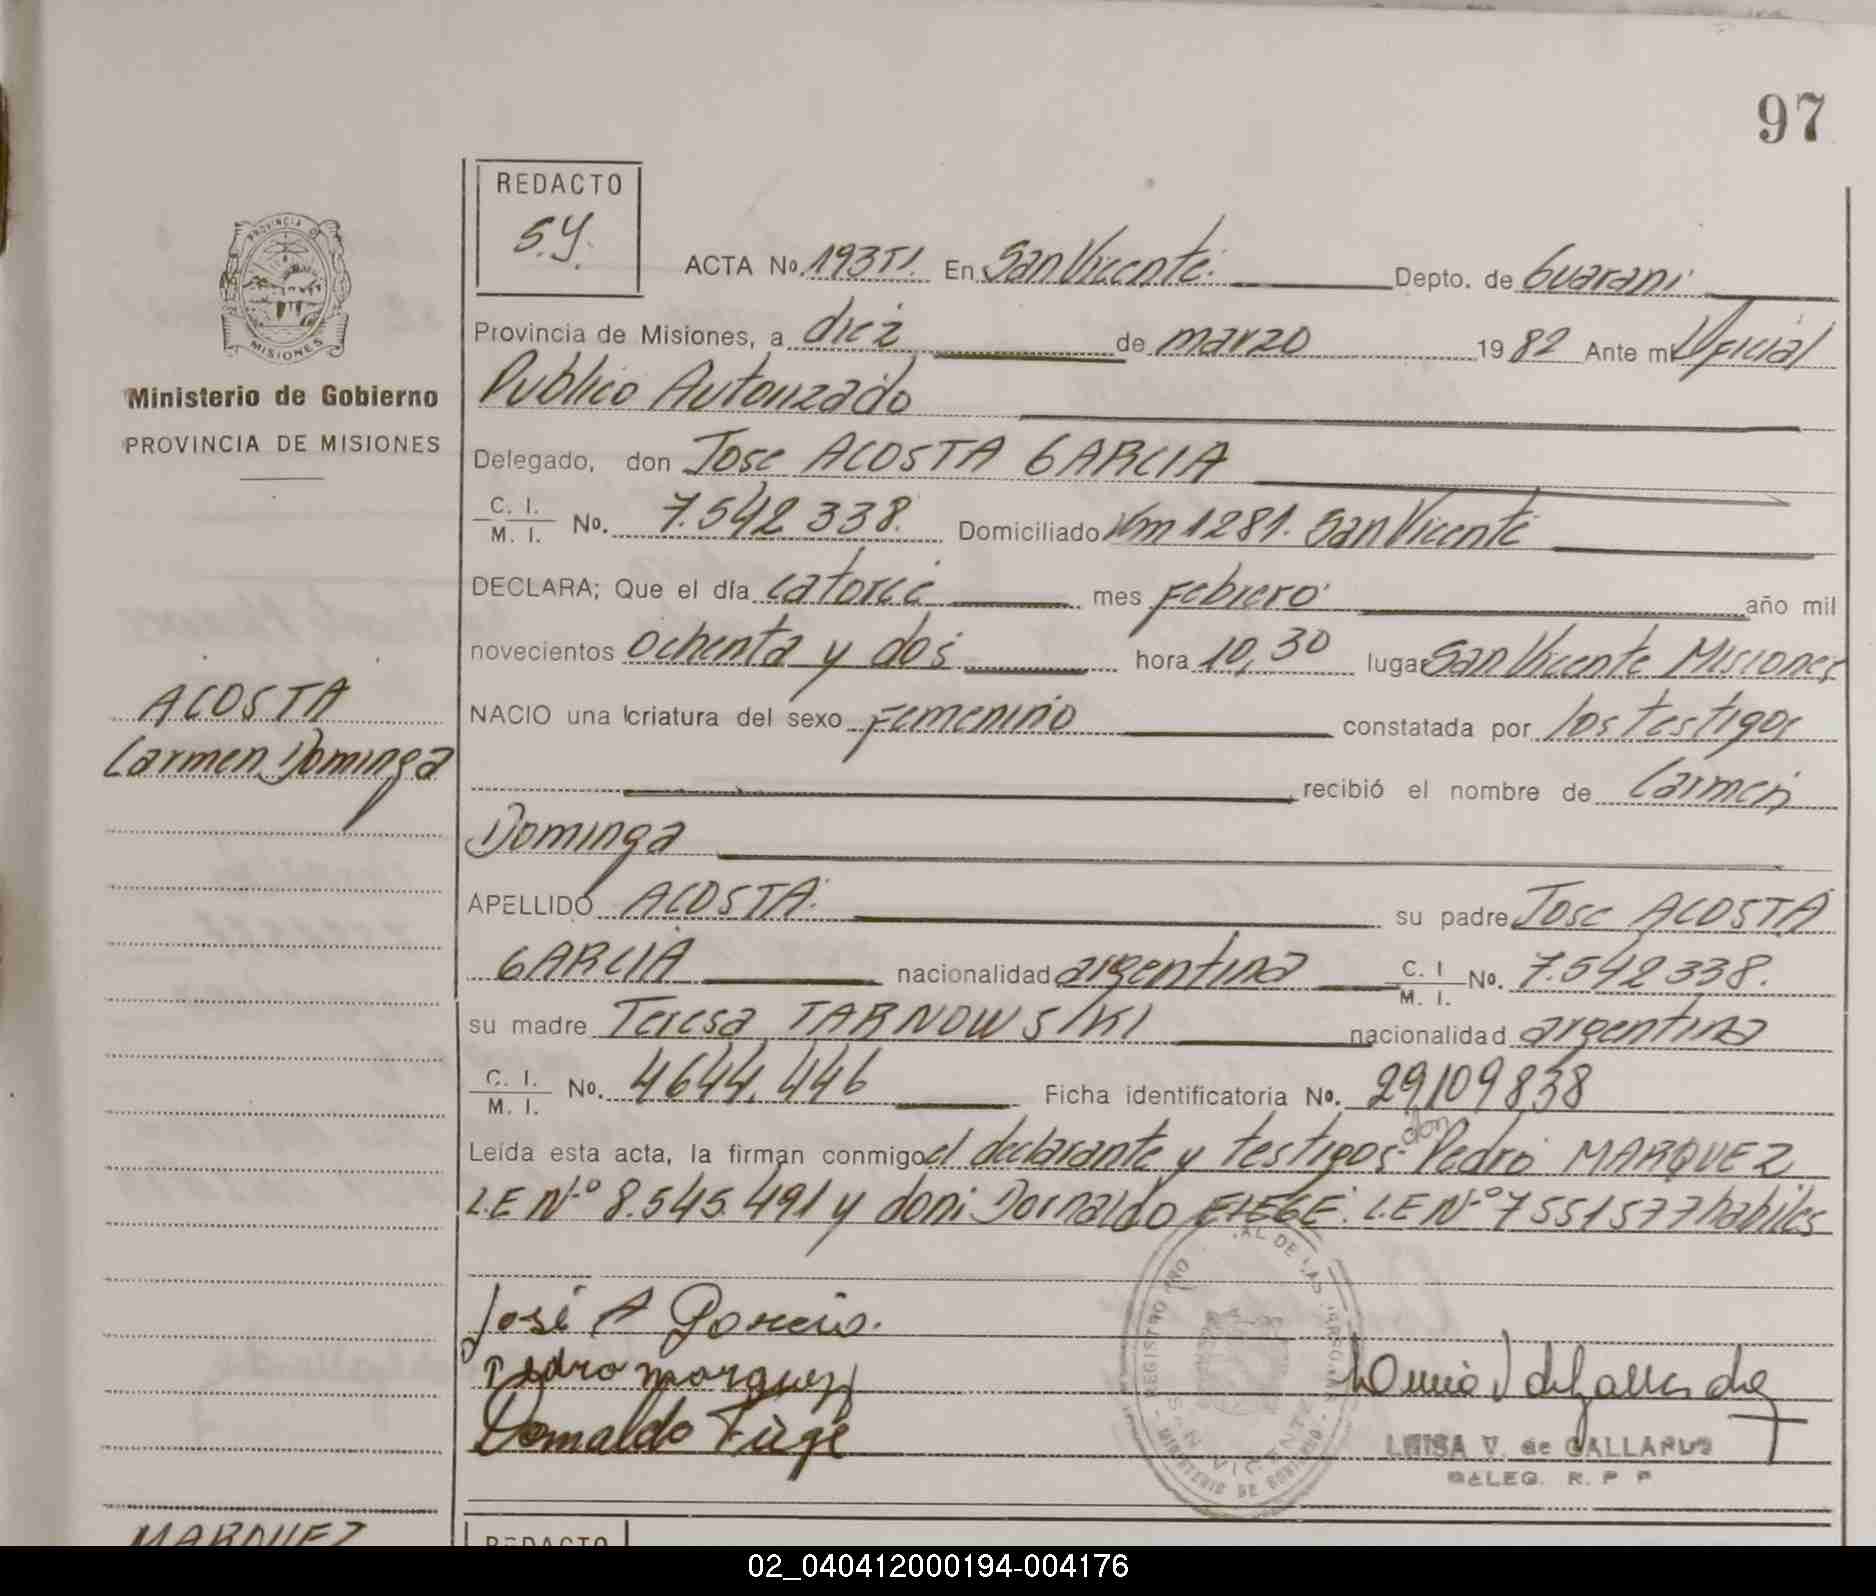 97
REDACTO
S.Y.
ACTA No. 193 T1. En San Vicente. Depto. de Guarani
PROVINCIA DE
MISIONES
Ministerio de Gobierno
PROVINCIA DE MISIONES
Provincia de Misiones, a diez de marzo 1982 Ante mi Oficial
Publico Autorizado
Delegado, don Jose ACOSTA GARCIA
C. I.
M. I. No. 7.542 338. Domiciliado Km 1281. San Vicente
DECLARA; Que el día catorce mes Febrero año mil
novecientos ochenta y dos hora 10,30 lugar San Vicente Misiones
ACOSTA
Carmen Dominga
NACIO una criatura del sexo Femenino constatada por los testigos
recibió el nombre de Carmen
Dominga
APELLIDO ACOSTA. su padre Jose ACOSTA
GARCIA nacionalidad argentina C. I. M. I. No. 7.542 338.
su madre Teresa TARNOWSKI nacionalidad argentina
C. I.
M. I. No. 4644.446 Ficha identificatoria No. 29109838
Leída esta acta, la firman conmigo el declarante y testigos don Pedro MARQUEZ
L.E Nº 8.545.491 y don Dornaldo L.E Nº 7551577 habiles
José A Garcia.
Pedro Marquez
LUISA V. de GALLARDO
DELEG. R. P. P
REGISTRO PRO AL DE LAS PERSONAS
SAN VICENTE
MINISTERIO DE GOBIERNO
MARQUEZ
REDACTO
02_040412000194-004176